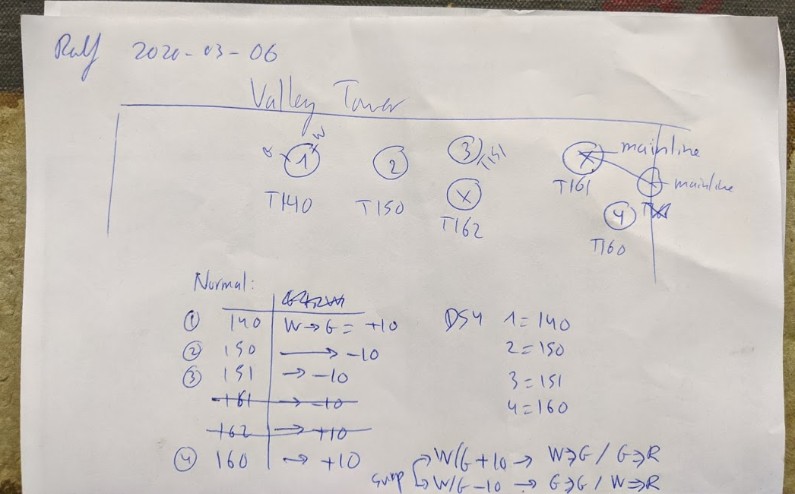 Ralf 2020-03-06
Valley Tower
W
1 2 3 T151 X mainline
T140 T150 X T161 mainline
T162 4
T160
Normal:
① 140 W→G = +10 DS4 1=140
② 150 → -10 2=150
③ 151 → -10 3=151
161 → -10 4=160
162 → +10
④ 160 → +10
W/G +10 → W⇒G / G⇒R
W/G -10 → G⇒G / W⇒R